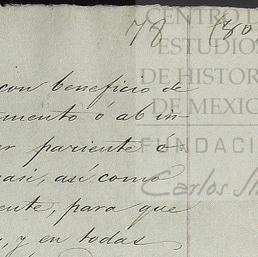 78 180
CENTRO D
ESTUDIOS
DE HISTOR
DE MEXIC
FUNDACI
Carlos Sl
con beneficio de
mento ó ab in-
er pariente ó
casi, así como
ente, para que
, y en todas